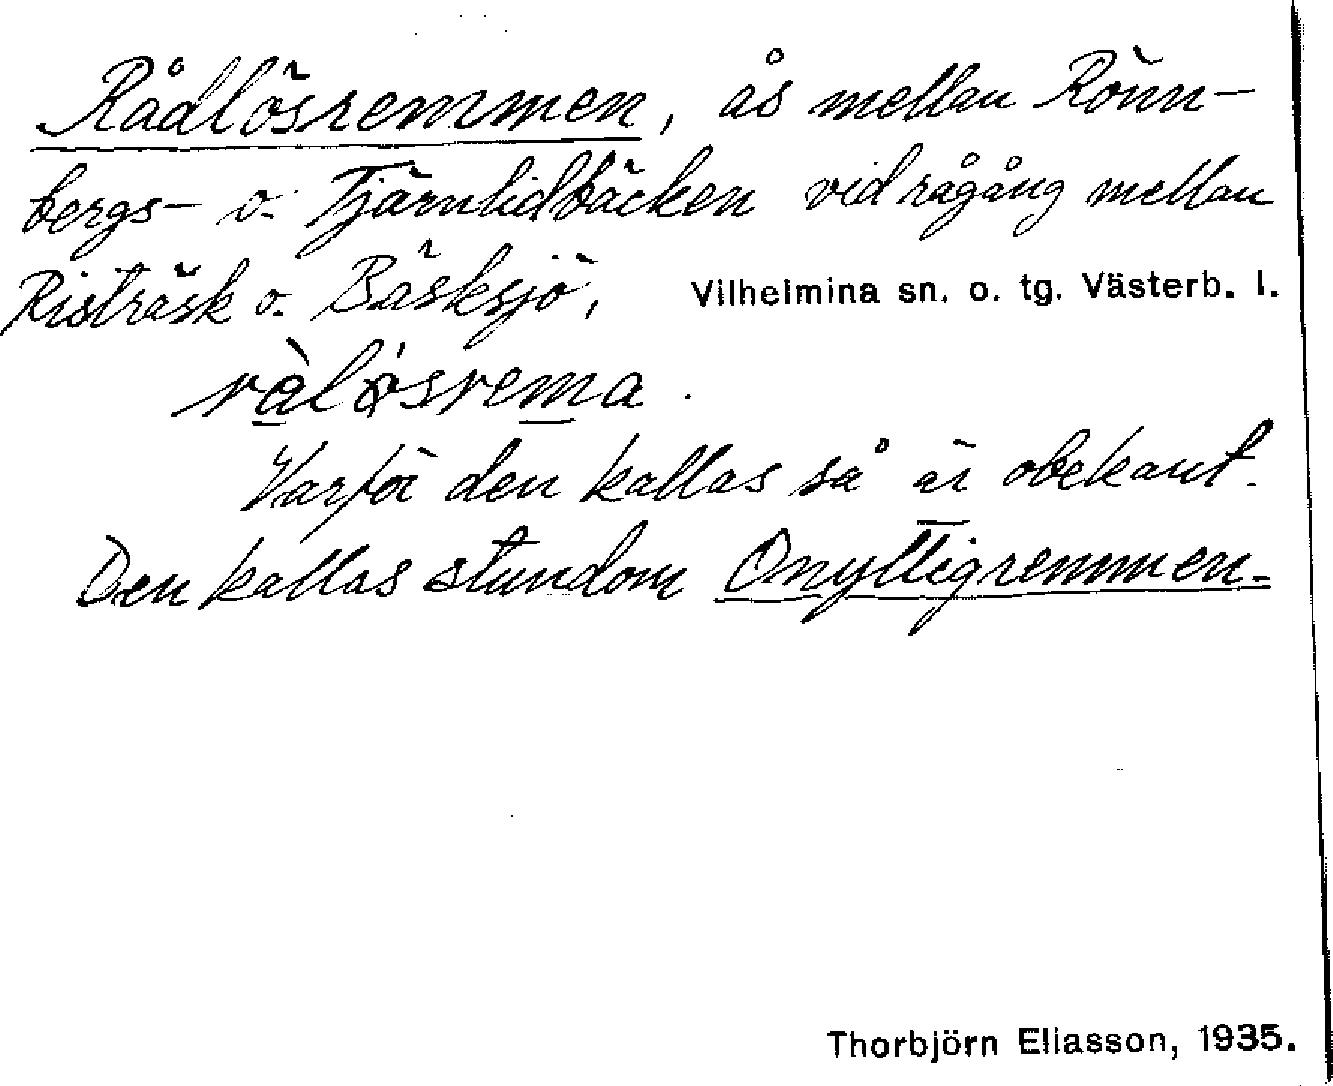 Rådlösremmen, ås mellan Rönn-
bergs- o. Tjärnlidbäcken vid rågång mellan
Risträsk o. Bäsksjö, Vilhelmina sn. o. tg. Västerb. l.
ràlósrema.
Varför den kallas så är obekant.
Den kallas stundom Onyttigremmen.
Thorbjörn Eliasson, 1935.